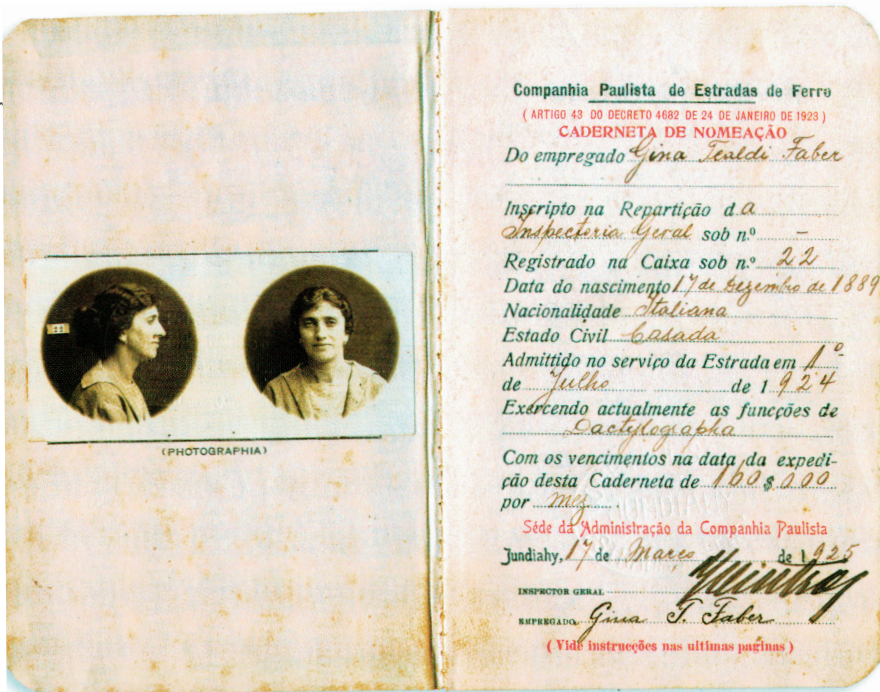 (PHOTOGRAPHIA)
Companhia Paulista de Estradas de Ferro
(ARTIGO 43 DO DECRETO 4682 DE 24 DE JANEIRO DE 1923)
CADERNETA DE NOMEAÇÃO
Do empregado Gina Tealdi Faber
Inscripto na Repartição da
Inspectoria Geral sob n.º -
Registrado na Caixa sob n.º 22
Data do nascimento 17 de Dezembro de 1889
Nacionalidade Italiana
Estado Civil Casada
Admittido no serviço da Estrada em 1º
de Julho de 1924
Exercendo actualmente as funcções de
Dactylographa
Com os vencimentos na data da expedi-
ção desta Caderneta de 160$000
por mez
Séde da Administração da Companhia Paulista
Jundiahy, 17 de Março de 1925
INSPECTOR GERAL
EMPREGADO Gina T. Faber
(Vide instrucções nas ultimas paginas)